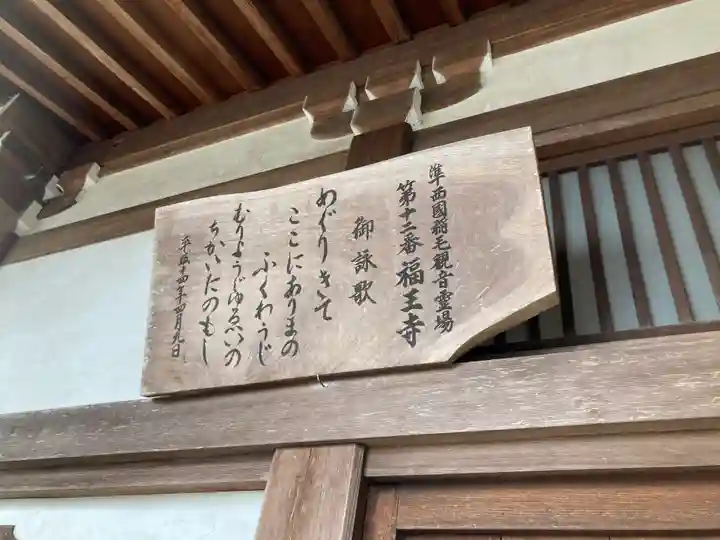 準西國稲毛観音霊場
第十二番福王寺
御詠歌
めぐりきて
ここにありまの
ふくわうじ
むりようじゆるいの
ちかいたのもし
平成十四年四月九日